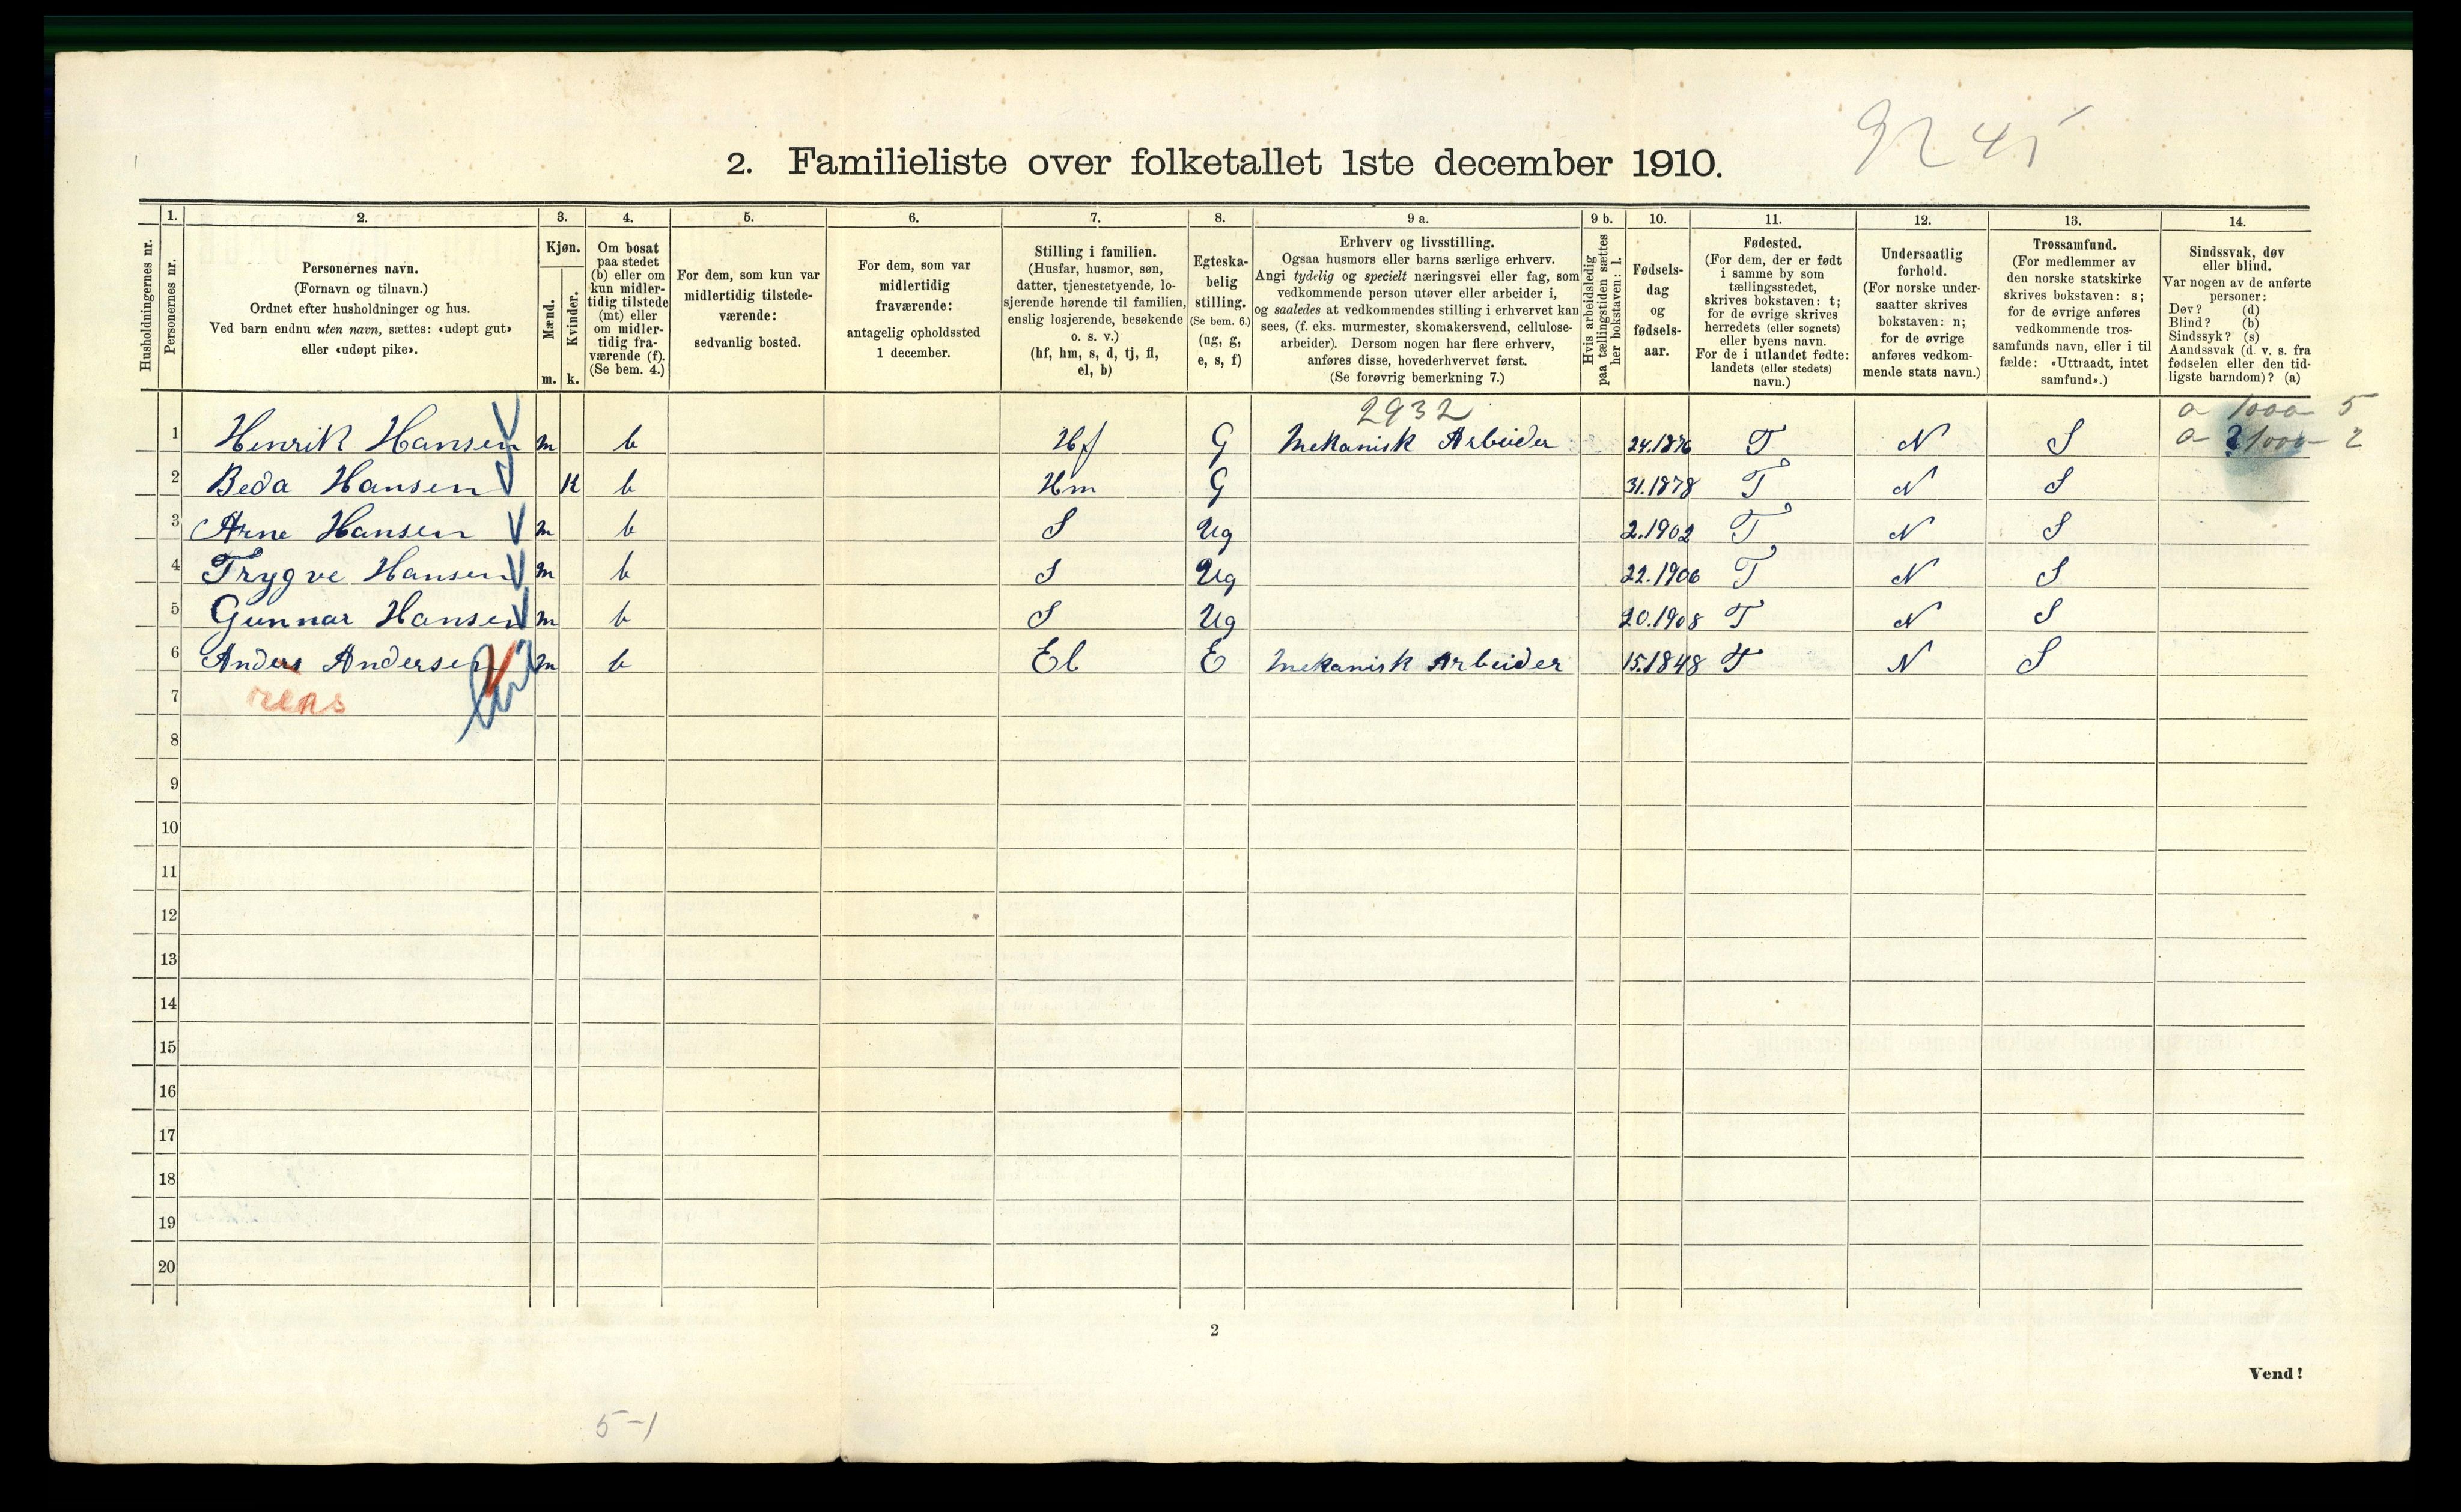 9245
2. Familieliste over folketallet 1ste december 1910.
Husholdningernes nr.
1. Personernes nr.
2. Personernes navn. (Fornavn og tilnavn.) Ordnet efter husholdninger og hus. Ved barn endnu uten navn, sættes: «udøpt gut» eller «udøpt pike».
3. Kjøn. Mænd. m. Kvinder. k.
4. Om bosat paa stedet (b) eller om kun midler-tidig tilstede (mt) eller om midler-tidig fra-værende (f). (Se bem. 4.)
5. For dem, som kun var midlertidig tilstede-værende: sedvanlig bosted.
6. For dem, som var midlertidig fraværende: antagelig opholdssted 1 december.
7. Stilling i familien. (Husfar, husmor, søn, datter, tjenestetyende, lo-sjerende hørende til familien, enslig losjerende, besøkende o. s. v.) (hf, hm, s, d, tj, fl, el, b)
8. Egteska-belig stilling. (Se bem. 6.) (ug, g, e, s, f)
9 a. Erhverv og livsstilling. Ogsaa husmors eller barns særlige erhverv. Angi tydelig og specielt næringsvei eller fag, som vedkommende person utøver eller arbeider i, og saaledes at vedkommendes stilling i erhvervet kan sees, (f. eks. murmester, skomakersvend, cellulose-arbeider). Dersom nogen har flere erhverv, anføres disse, hovederhvervet først. (Se forøvrig bemerkning 7.)
9 b. Hvis arbeidsledig paa tællingstiden sættes her bokstaven: l.
10. Fødsels-dag og fødsels-aar.
11. Fødested. (For dem, der er født i samme by som tællingsstedet, skrives bokstaven: t; for de øvrige skrives herredets (eller sognets) eller byens navn. For de i utlandet fødte: landets (eller stedets) navn.)
12. Undersaatlig forhold. (For norske under-saatter skrives bokstaven: n; for de øvrige anføres vedkom-mende stats navn.)
13. Trossamfund. (For medlemmer av den norske statskirke skrives bokstaven: s; for de øvrige anføres vedkommende tros-samfunds navn, eller i til fælde: «Uttraadt, intet samfund».)
14. Sindssvak, døv eller blind. Var nogen av de anførte personer: Døv? (d) Blind? (b) Sindssyk? (s) Aandssvak (d. v. s. fra fødselen eller den tid-ligste barndom)? (a)
2932 a 1000 5
1 Henrik Hansen m b Hf G Mekanisk Arbeider 24.1876 T N S a 1000 2
2 Beda Hansen K b Hm G 31.1878 T N S
3 Arne Hansen m b S Ug 2.1902 T N S
4 Trygve Hansen m b S Ug 22.1906 T N S
5 Gunnar Hansen m b S Ug 20.1908 T N S
6 Anders Andersen m b El E Mekanisk Arbeider 15.1848 T N S
7
8
9
10
11
12
13
14
15
16
17
18
19
20
2
Vend!
5-1